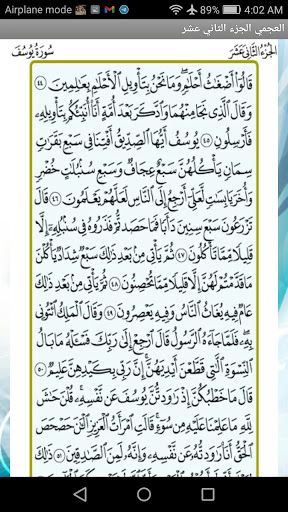 Airplane mode 4:02 AM
العجمي الجزء الثاني عشر
الجزء الثاني عشر سورة يوسف
قَالُوٓا۟ أَضْغَٰثُ أَحْلَٰمٍ وَمَا نَحْنُ بِتَأْوِيلِ ٱلْأَحْلَٰمِ بِعَٰلِمِينَ ٤٤
وَقَالَ ٱلَّذِى نَجَا مِنْهُمَا وَٱدَّكَرَ بَعْدَ أُمَّةٍ أَنَا۠ أُنَبِّئُكُم بِتَأْوِيلِهِۦ
فَأَرْسِلُونِ ٤٥ يُوسُفُ أَيُّهَا ٱلصِّدِّيقُ أَفْتِنَا فِى سَبْعِ بَقَرَٰتٍ
سِمَانٍ يَأْكُلُهُنَّ سَبْعٌ عِجَافٌ وَسَبْعِ سُنۢبُلَٰتٍ خُضْرٍ
وَأُخَرَ يَابِسَٰتٍ لَّعَلِّىٓ أَرْجِعُ إِلَى ٱلنَّاسِ لَعَلَّهُمْ يَعْلَمُونَ ٤٦ قَالَ
تَزْرَعُونَ سَبْعَ سِنِينَ دَأَبًا فَمَا حَصَدتُّمْ فَذَرُوهُ فِى سُنۢبُلِهِۦٓ إِلَّا
قَلِيلًا مِّمَّا تَأْكُلُونَ ٤٧ ثُمَّ يَأْتِى مِنۢ بَعْدِ ذَٰلِكَ سَبْعٌ شِدَادٌ يَأْكُلْنَ
مَا قَدَّمْتُمْ لَهُنَّ إِلَّا قَلِيلًا مِّمَّا تُحْصِنُونَ ٤٨ ثُمَّ يَأْتِى مِنۢ بَعْدِ ذَٰلِكَ
عَامٌ فِيهِ يُغَاثُ ٱلنَّاسُ وَفِيهِ يَعْصِرُونَ ٤٩ وَقَالَ ٱلْمَلِكُ ٱئْتُونِى
بِهِۦ فَلَمَّا جَآءَهُ ٱلرَّسُولُ قَالَ ٱرْجِعْ إِلَىٰ رَبِّكَ فَسْـَٔلْهُ مَا بَالُ
ٱلنِّسْوَةِ ٱلَّٰتِى قَطَّعْنَ أَيْدِيَهُنَّ إِنَّ رَبِّى بِكَيْدِهِنَّ عَلِيمٌ
٥٠ قَالَ مَا خَطْبُكُنَّ إِذْ رَٰوَدتُّنَّ يُوسُفَ عَن نَّفْسِهِۦ قُلْنَ حَٰشَ
لِلَّهِ مَا عَلِمْنَا عَلَيْهِ مِن سُوٓءٍ قَالَتِ ٱمْرَأَتُ ٱلْعَزِيزِ ٱلْـَٰٔنَ حَصْحَصَ
ٱلْحَقُّ أَنَا۠ رَٰوَدتُّهُۥ عَن نَّفْسِهِۦ وَإِنَّهُۥ لَمِنَ ٱلصَّٰدِقِينَ ٥١